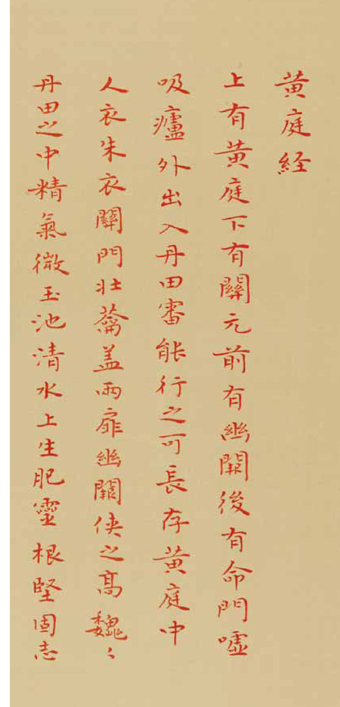 黄庭经
上有黄庭下有關元前有幽闕後有命門噓
吸廬外出入丹田審能行之可長存黄庭中
人衣朱衣關門壯蘥盖兩扉幽關侠之髙魏〻
丹田之中精氣微玉池清水上生肥靈根堅固志